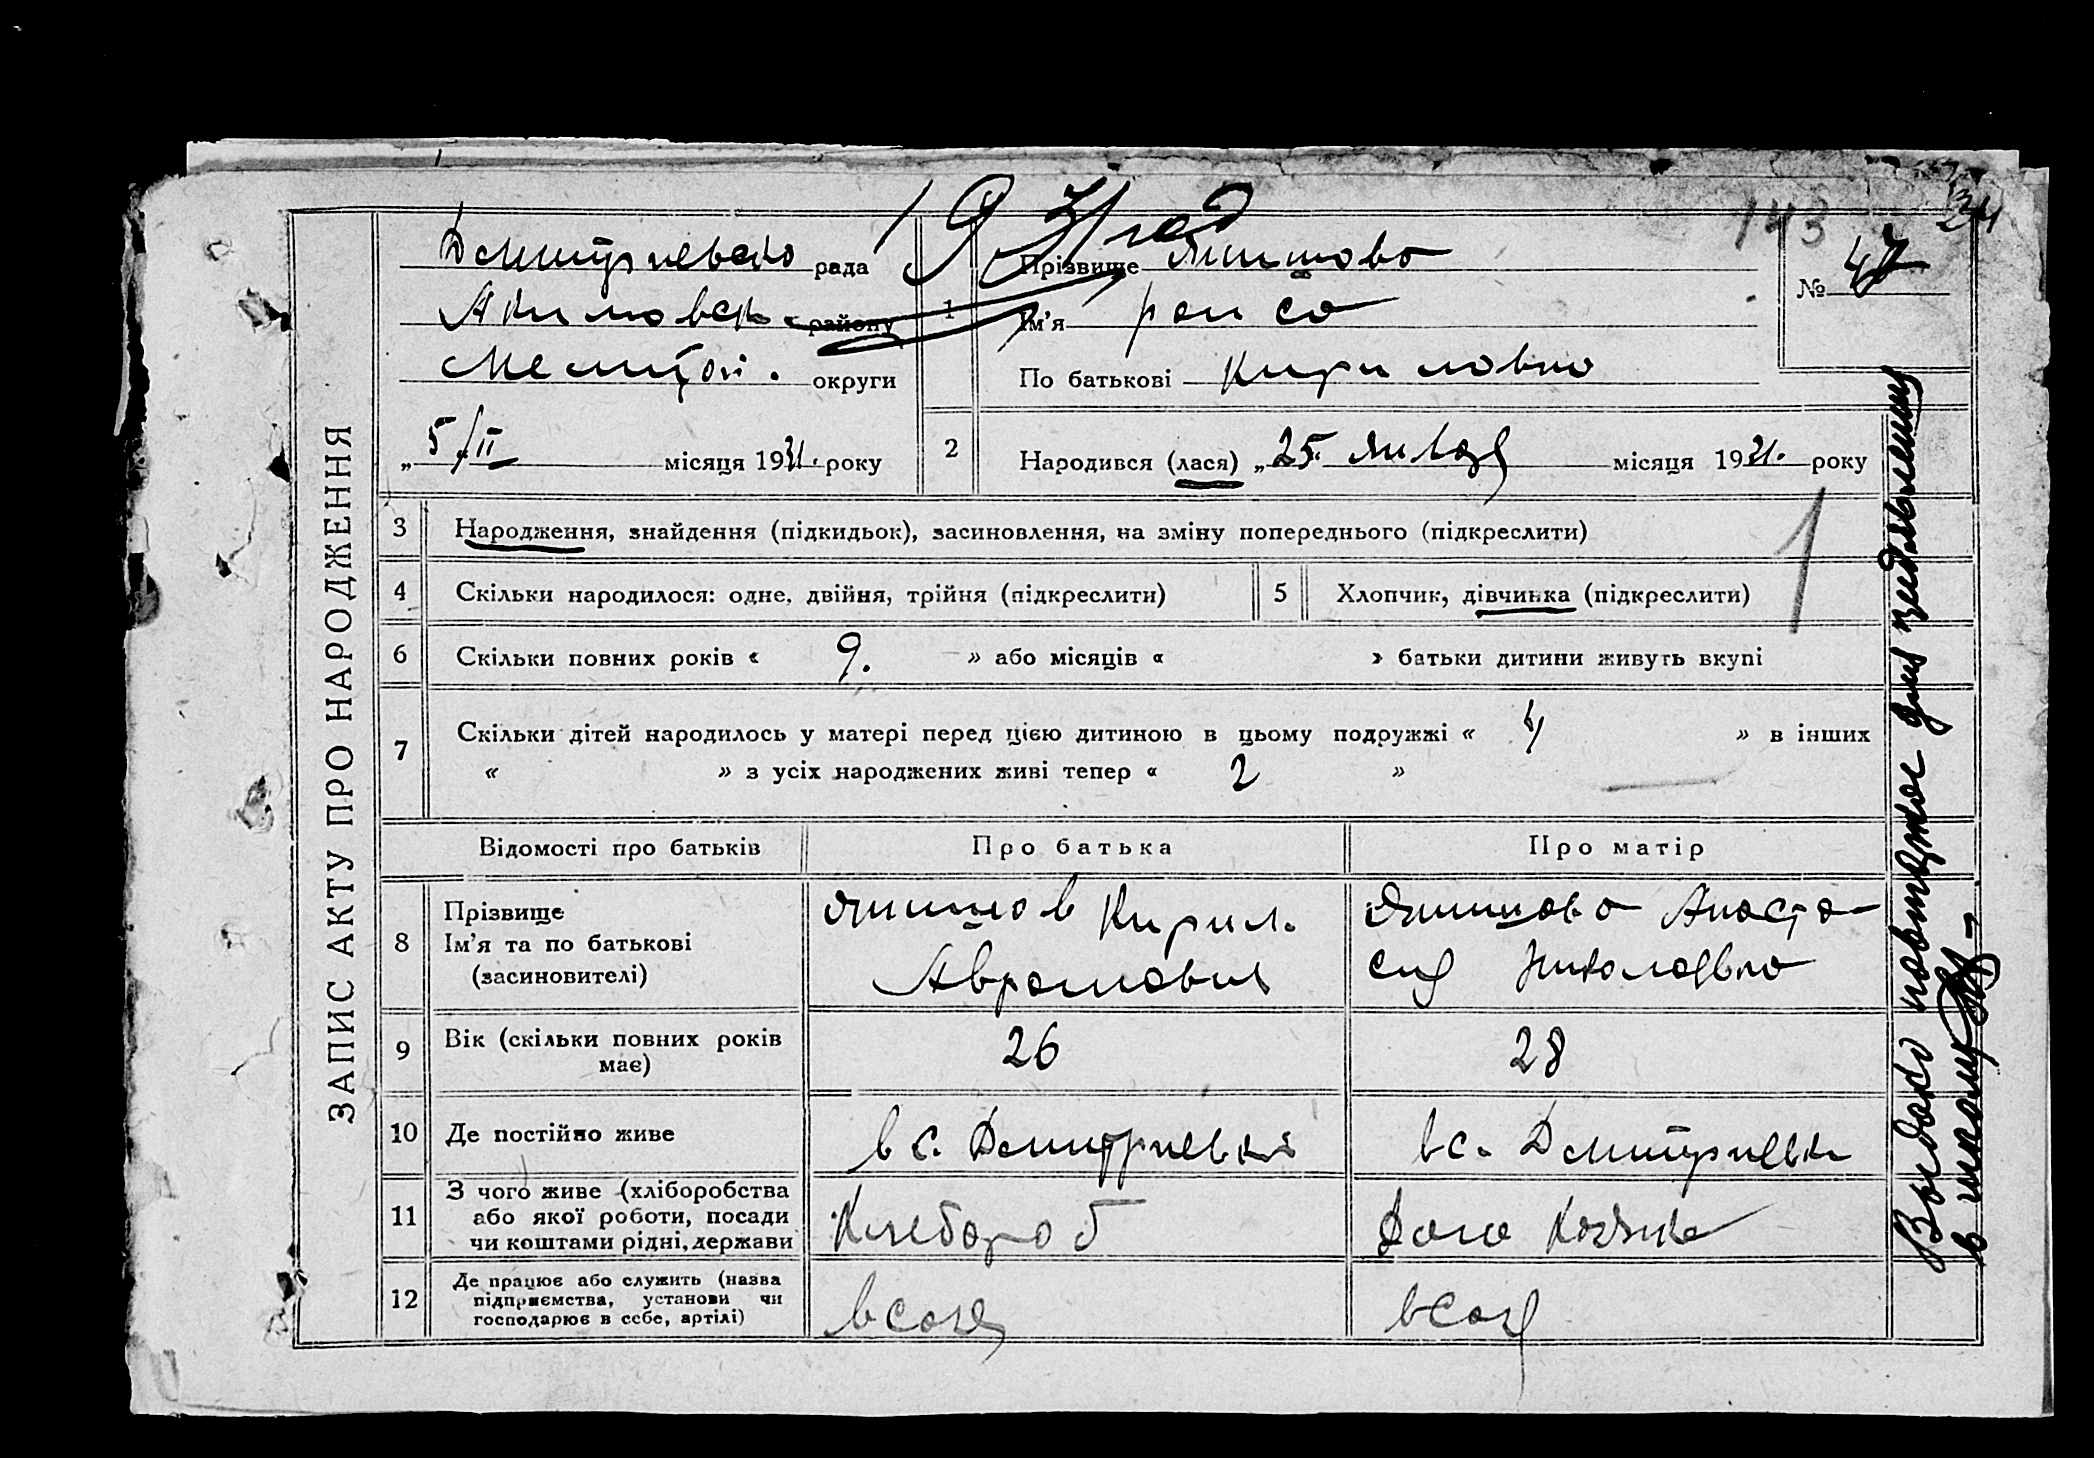 1931 год
143
34
ЗАПИС АКТУ ПРО НАРОДЖЕННЯ
Дмитриевско рада
Акимовск. району
Мелитоп. округи
„5/II місяця 1931. року
1
Прізвище
Ім’я Раиса
По батькові Кириловна
№ 47
2
Народився (лася) „25. января місяця 1931. року
3
Народження, знайдення (підкидьок), засиновлення, на зміну попереднього (підкреслити)
4
Скільки народилося: одне, двійня, трійня (підкреслити)
5
Хлопчик, дівчинка (підкреслити)
6
Скільки повних років « 9. » або місяців « » батьки дитини живуть вкупі
7
Скільки дітей народилось у матері перед цією дитиною в цьому подружжі « 4 » в інших
« » з усіх народжених живі тепер « 2 »
Відомості про батьків
Про батька
Про матір
8
Прізвище
Ім’я та по батькові
(засиновителі)
Кирил.
Аврамович
Анаста-
сия Николаевна
9
Вік (скільки повних років
має)
26
28
10
Де постійно живе
в с. Дмитриевка
в с. Дмитриевка
11
З чого живе (хліборобства
або якої роботи, посади
чи коштами рідні, держави
Хлебороб
Дома хозяйка
12
Де працює або служить (назва
підприємства, установи чи
господарює в себе, артілі)
в созе
в созе
Выдано повторное для предъявления
в школу